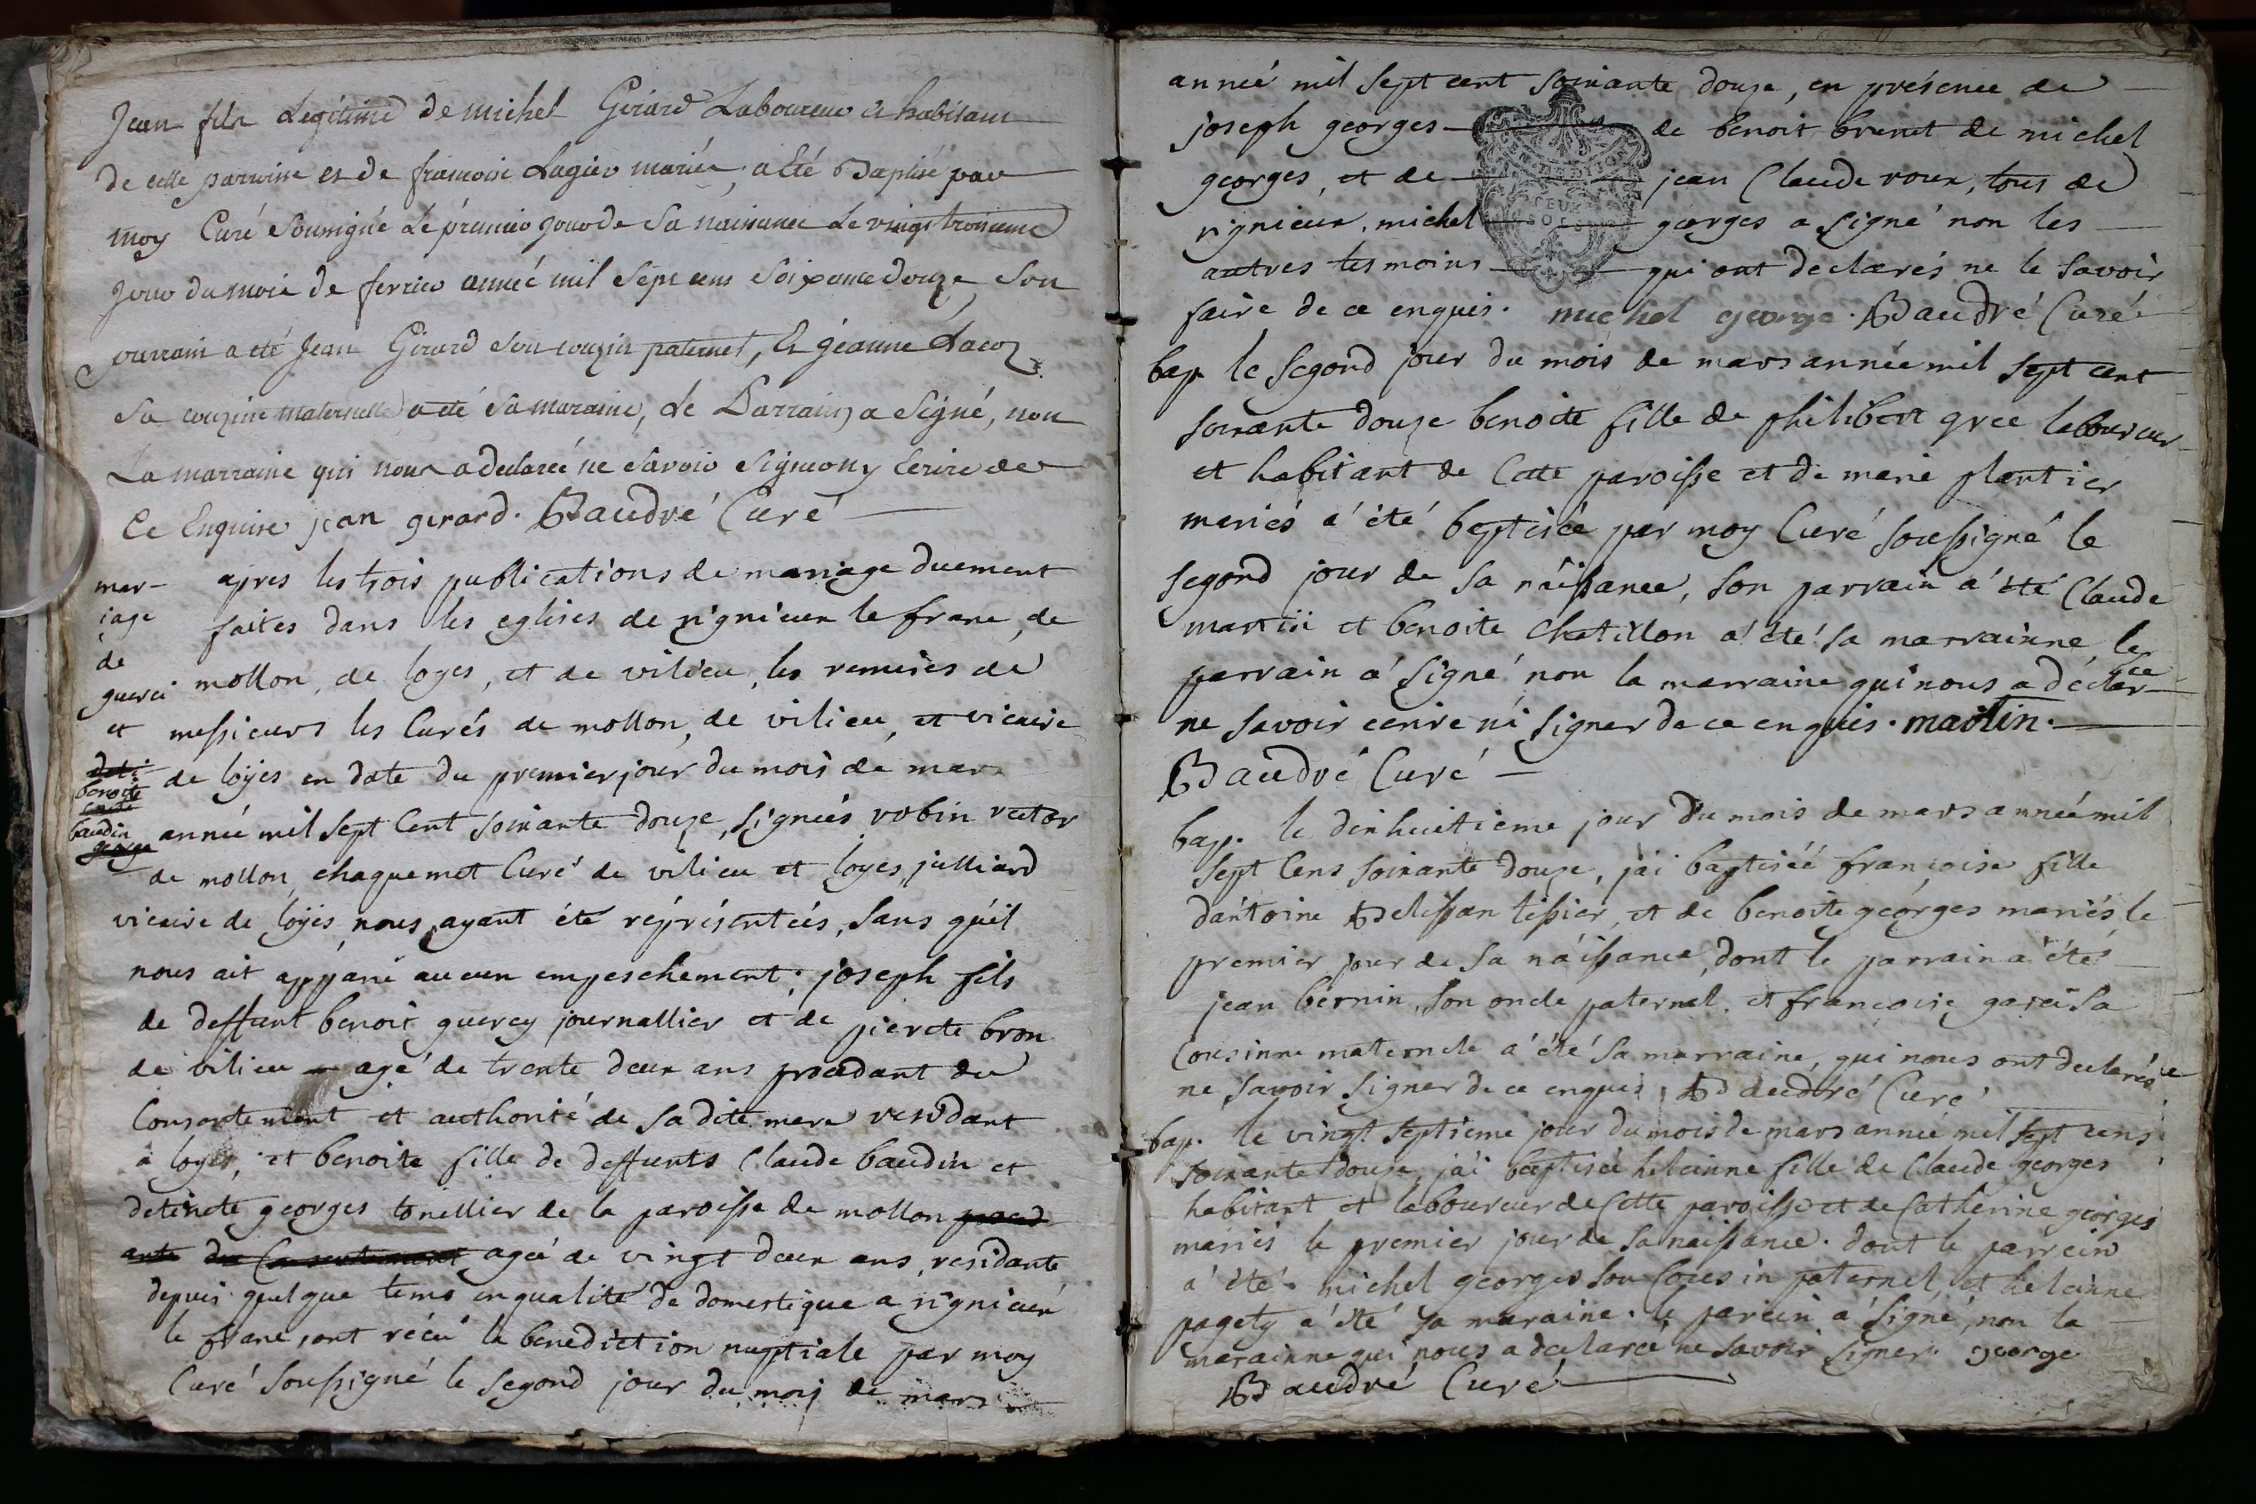 Jean fils Legitime de michel Girard Laboureur et habitant
de cette parroisse et de francoise Lagier mariés, a Eté Baptisé par
moy Curé Soussigné Le prémier jour de Sa naissance Le vingt troisieme
jour du mois de fevrier année mil Sept cens Soixante douze, Son
parrain a eté Jean Girard Son couzin paternel, Et géanne Lacoz
Sa couzine maternelle a eté Sa maraine, Le Parrain a Signé, non
La marraine qui nous a declareé ne Savoir Signer ny Ecrire de
Ce Enquise jean gerard. Baudré Curé
mar-
iage
de
guerci
et
benoite
baudin
apres les trois publications de mariage duement
faites dans les eglises de rignieux le franc, de
mollon, de loyes, et de vilieu, les remises de
messieurs les Curés de mollon, de vilieu, et vicaire
de loÿes en date du premier jour du mois de mars
année mil sept Cent soixante douze, signées robin rector
de mollon, chaquemet Curé de vilieu et loyes, julliard
vicaire de loÿes, nous ayant été répréséntéés, sans qu'il
nous ait apparu aucun empeschement; joseph fils
de deffunt benoit guercy journallier et de pierette bron
de vilieu agé de trente deux ans procedant du
Consentement et authorité de sa dite mere residant
a loyes, et benoite fille de deffunts Claude baudin et
detinete georges tonellier de la paroisse de mollon proced
ante du Consentement ageé de vingt deux ans, residante
depuis quelque tems en qualité de domestique a rignieux
le franc, ont récu la benediction nuptiale par moy
Curé soussigné le segond jour du mois de mars
année mil sept cent soixante douze, en présence de
joseph georges de benoit brunet de michel
georges, et de jean Claude roux, tous de
rignieux. michel georges a signé non les
autres tesmoins qui ont declarés ne le savoir
faire de ce enquis. michel george. Baudré Curé.
bap. le segond jour du mois de mars année mil sept cent
soixante douze benoite fille de philibert gree laboureur
et habitant de Cette paroisse et de marie plantier
mariés a été baptisée par moy Curé soussigné le
segond jour de sa naissance, son parrain a été Claude
martin et benoite Chatillon a été sa marrainne le
parrain a signé non la marraine qui nous a déclar
ée
ne savoir ecrire ni signer de ce enquis. martin.
Baudré Curé
bap. le dix huitieme jour du mois de mars année mil
sept Cens soixante douze, jai baptiséé françoise fille
dantoine Belissan tissier, et de benoite georges mariés, le
premier jour de sa naissance, dont le parrain a été
jean bernin, son oncle paternel. et françoise garci sa
Cousinne maternele a été sa marraine, qui nous ont declarés
ne savoir signer de ce enquis, Baudré Curé
bap. le vingt septieme jour du mois de mars année mil sept cens
soixante douze, jai baptisée helainne fille de Claude georges
habitant et laboureur de Cette paroisse et de Catherine georges
mariés le premier jour de sa naissance. dont le parrein
a été michel georges son Cousin paternel, et helainne
pagety a été sa maraine. le parein a signé, non la
marainne qui nous a declareé ne savoir signer. george
Baudré Curé